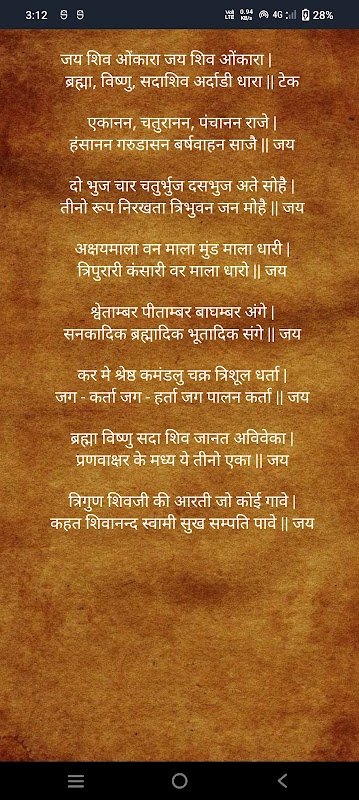 3:12
Vo) LTE 0.94 KB/s 4G 28%
जय शिव ओंकारा जय शिव ओंकारा |
ब्रह्मा, विष्णु, सदाशिव अर्दाडी धारा || टेक
एकानन, चतुरानन, पंचानन राजे |
हंसानन गरुडासन बर्षवाहन साजै || जय
दो भुज चार चतुर्भुज दसभुज अते सोहै |
तीनो रूप निरखता त्रिभुवन जन मोहै || जय
अक्षयमाला वन माला मुंड माला धारी |
त्रिपुरारी कंसारी वर माला धारो || जय
श्वेताम्बर पीताम्बर बाघम्बर अंगे |
सनकादिक ब्रह्मादिक भूतादिक संगे || जय
कर मे श्रेष्ठ कमंडलु चक्र त्रिशूल धर्ता |
जग - कर्ता जग - हर्ता जग पालन कर्ता || जय
ब्रह्मा विष्णु सदा शिव जानत अविवेका |
प्रणवाक्षर के मध्य ये तीनो एका || जय
त्रिगुण शिवजी की आरती जो कोई गावे |
कहत शिवानन्द स्वामी सुख सम्पति पावे || जय